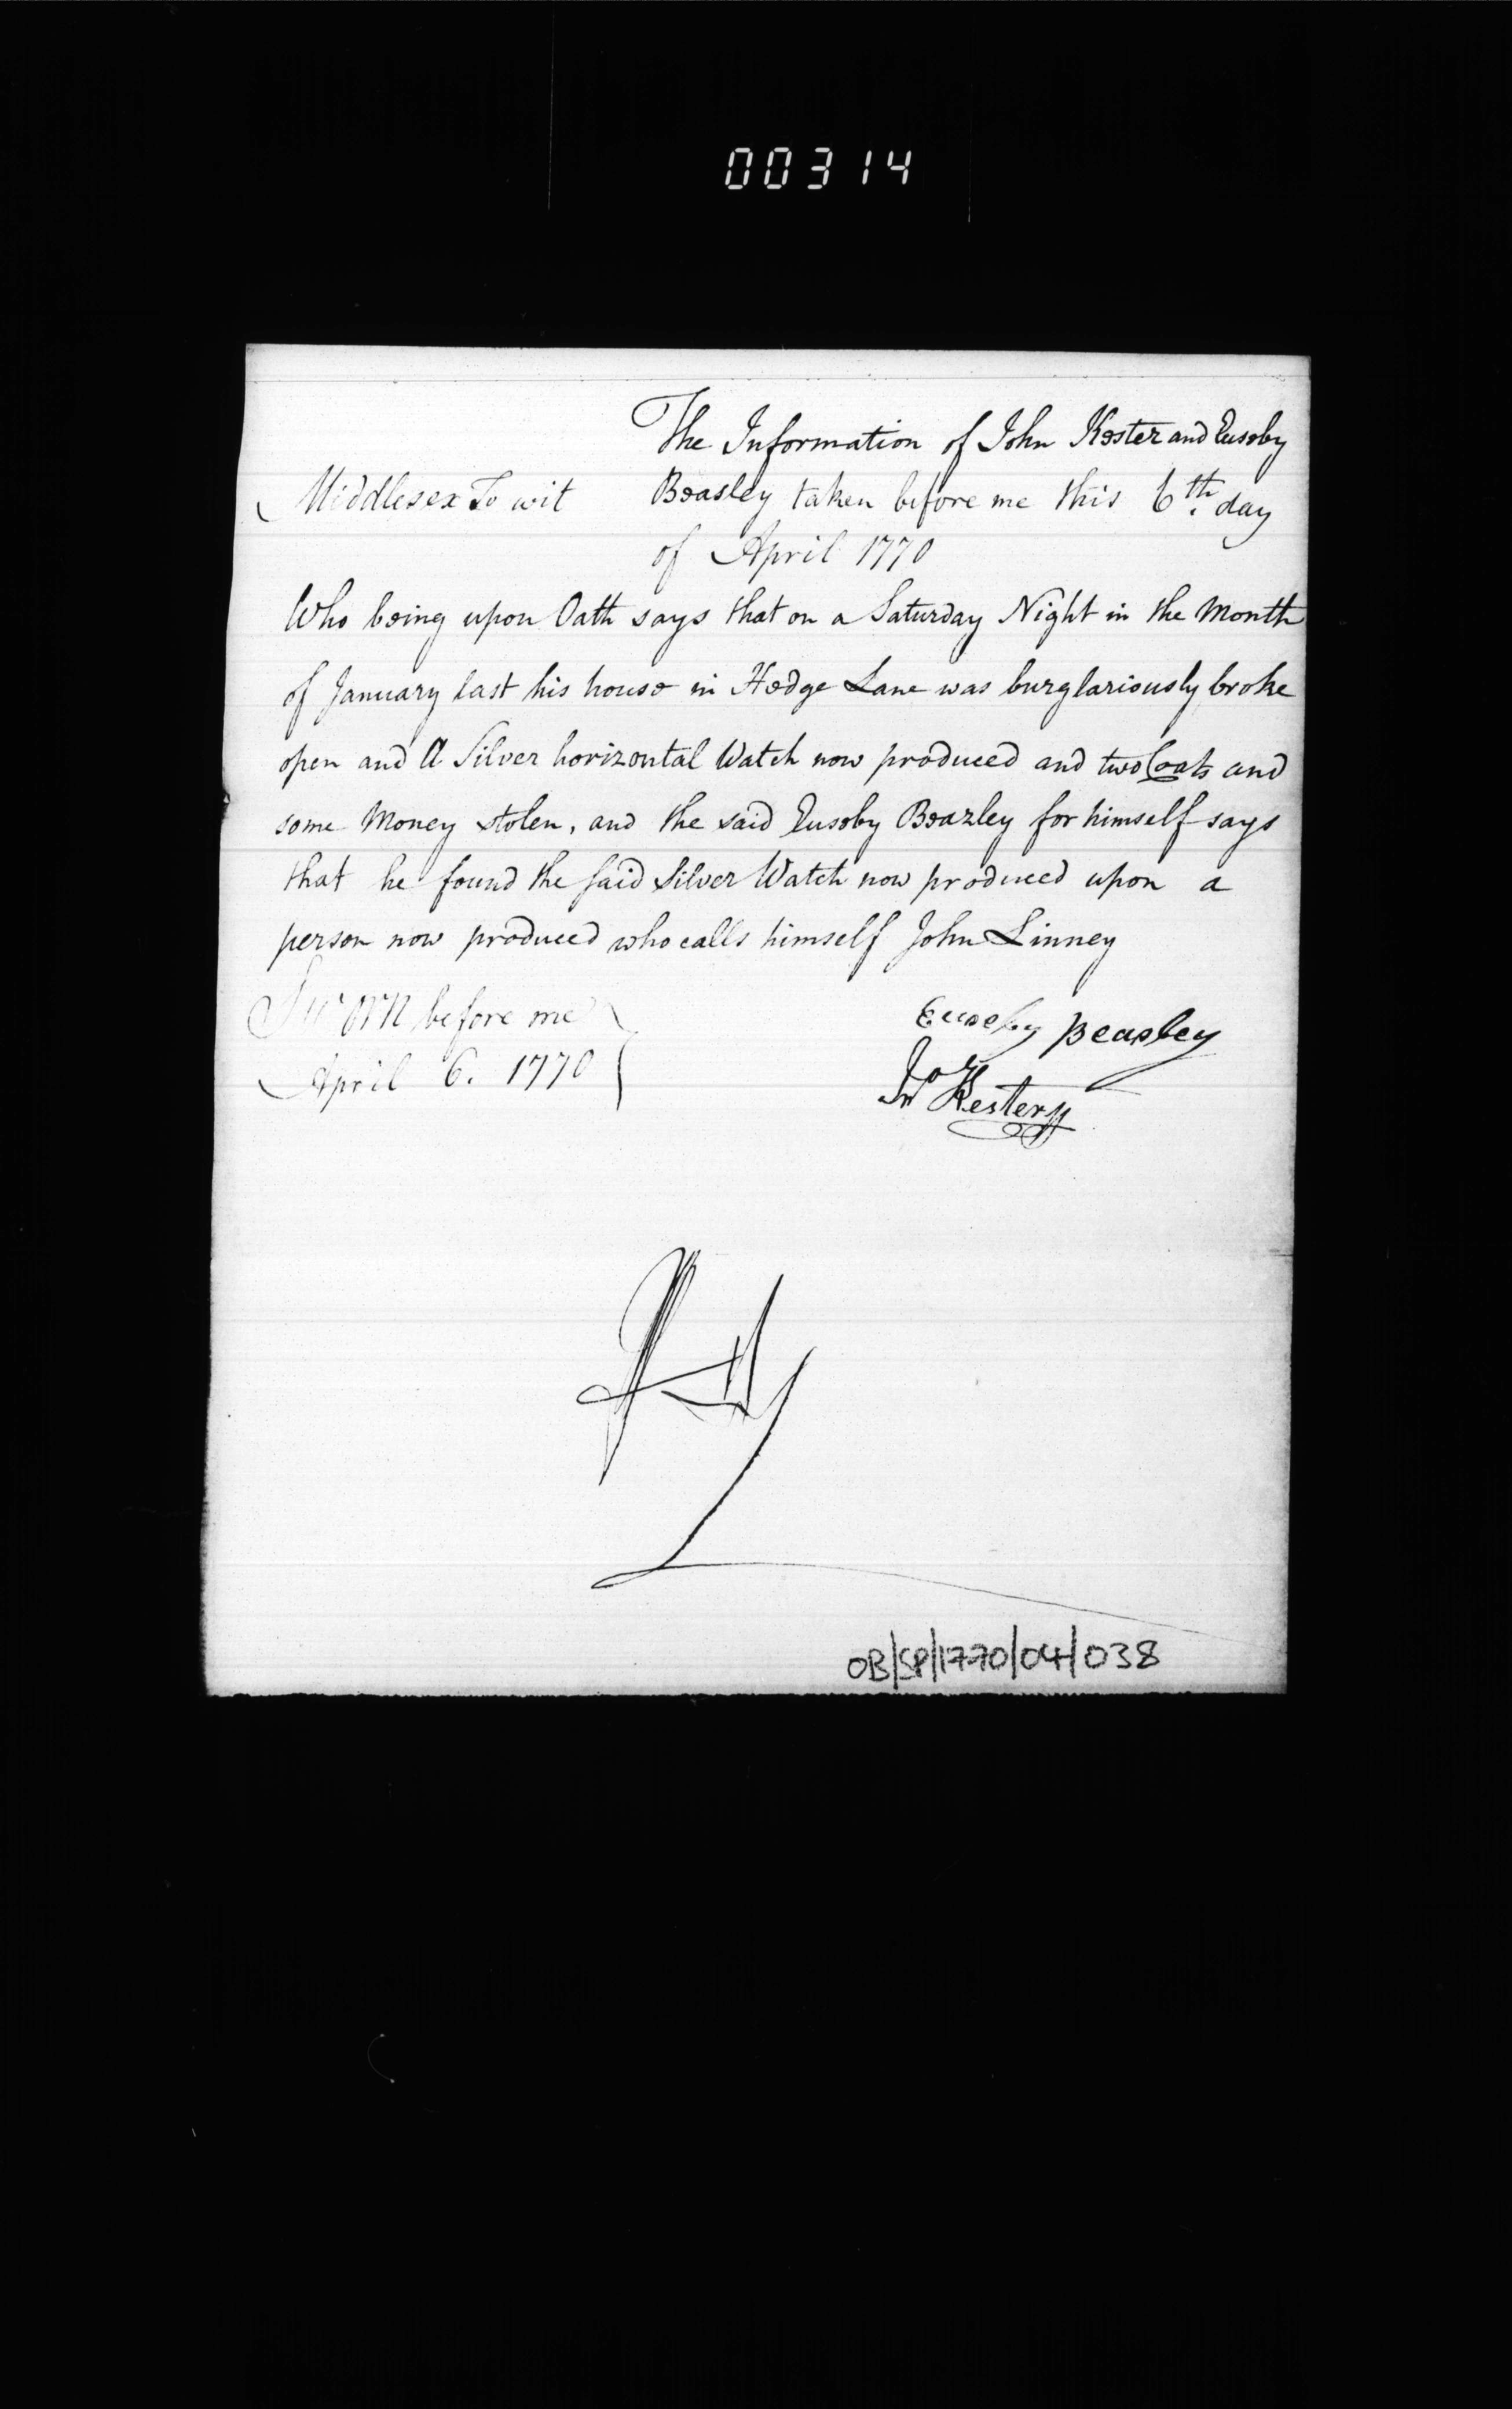 00314
The Information of John Kester and Euseby
Middlesex To wit Beasley taken before me this 6th. day
of April 1770
Who being upon Oath says that on a Saturday Night in the Month
of January last his house in Hedge Lane was burglariously broke
open and A Silver horizontal Watch now produced and two Coats and
some Money stolen, and the said Euseby Beazley for himself says
that he found the said Silver Watch now produced upon a
person now produced who calls himself John Linney
Sworn before me
April 6. 1770
Euseby Beasley
Jno Kester
OB/SP/1770/04/038